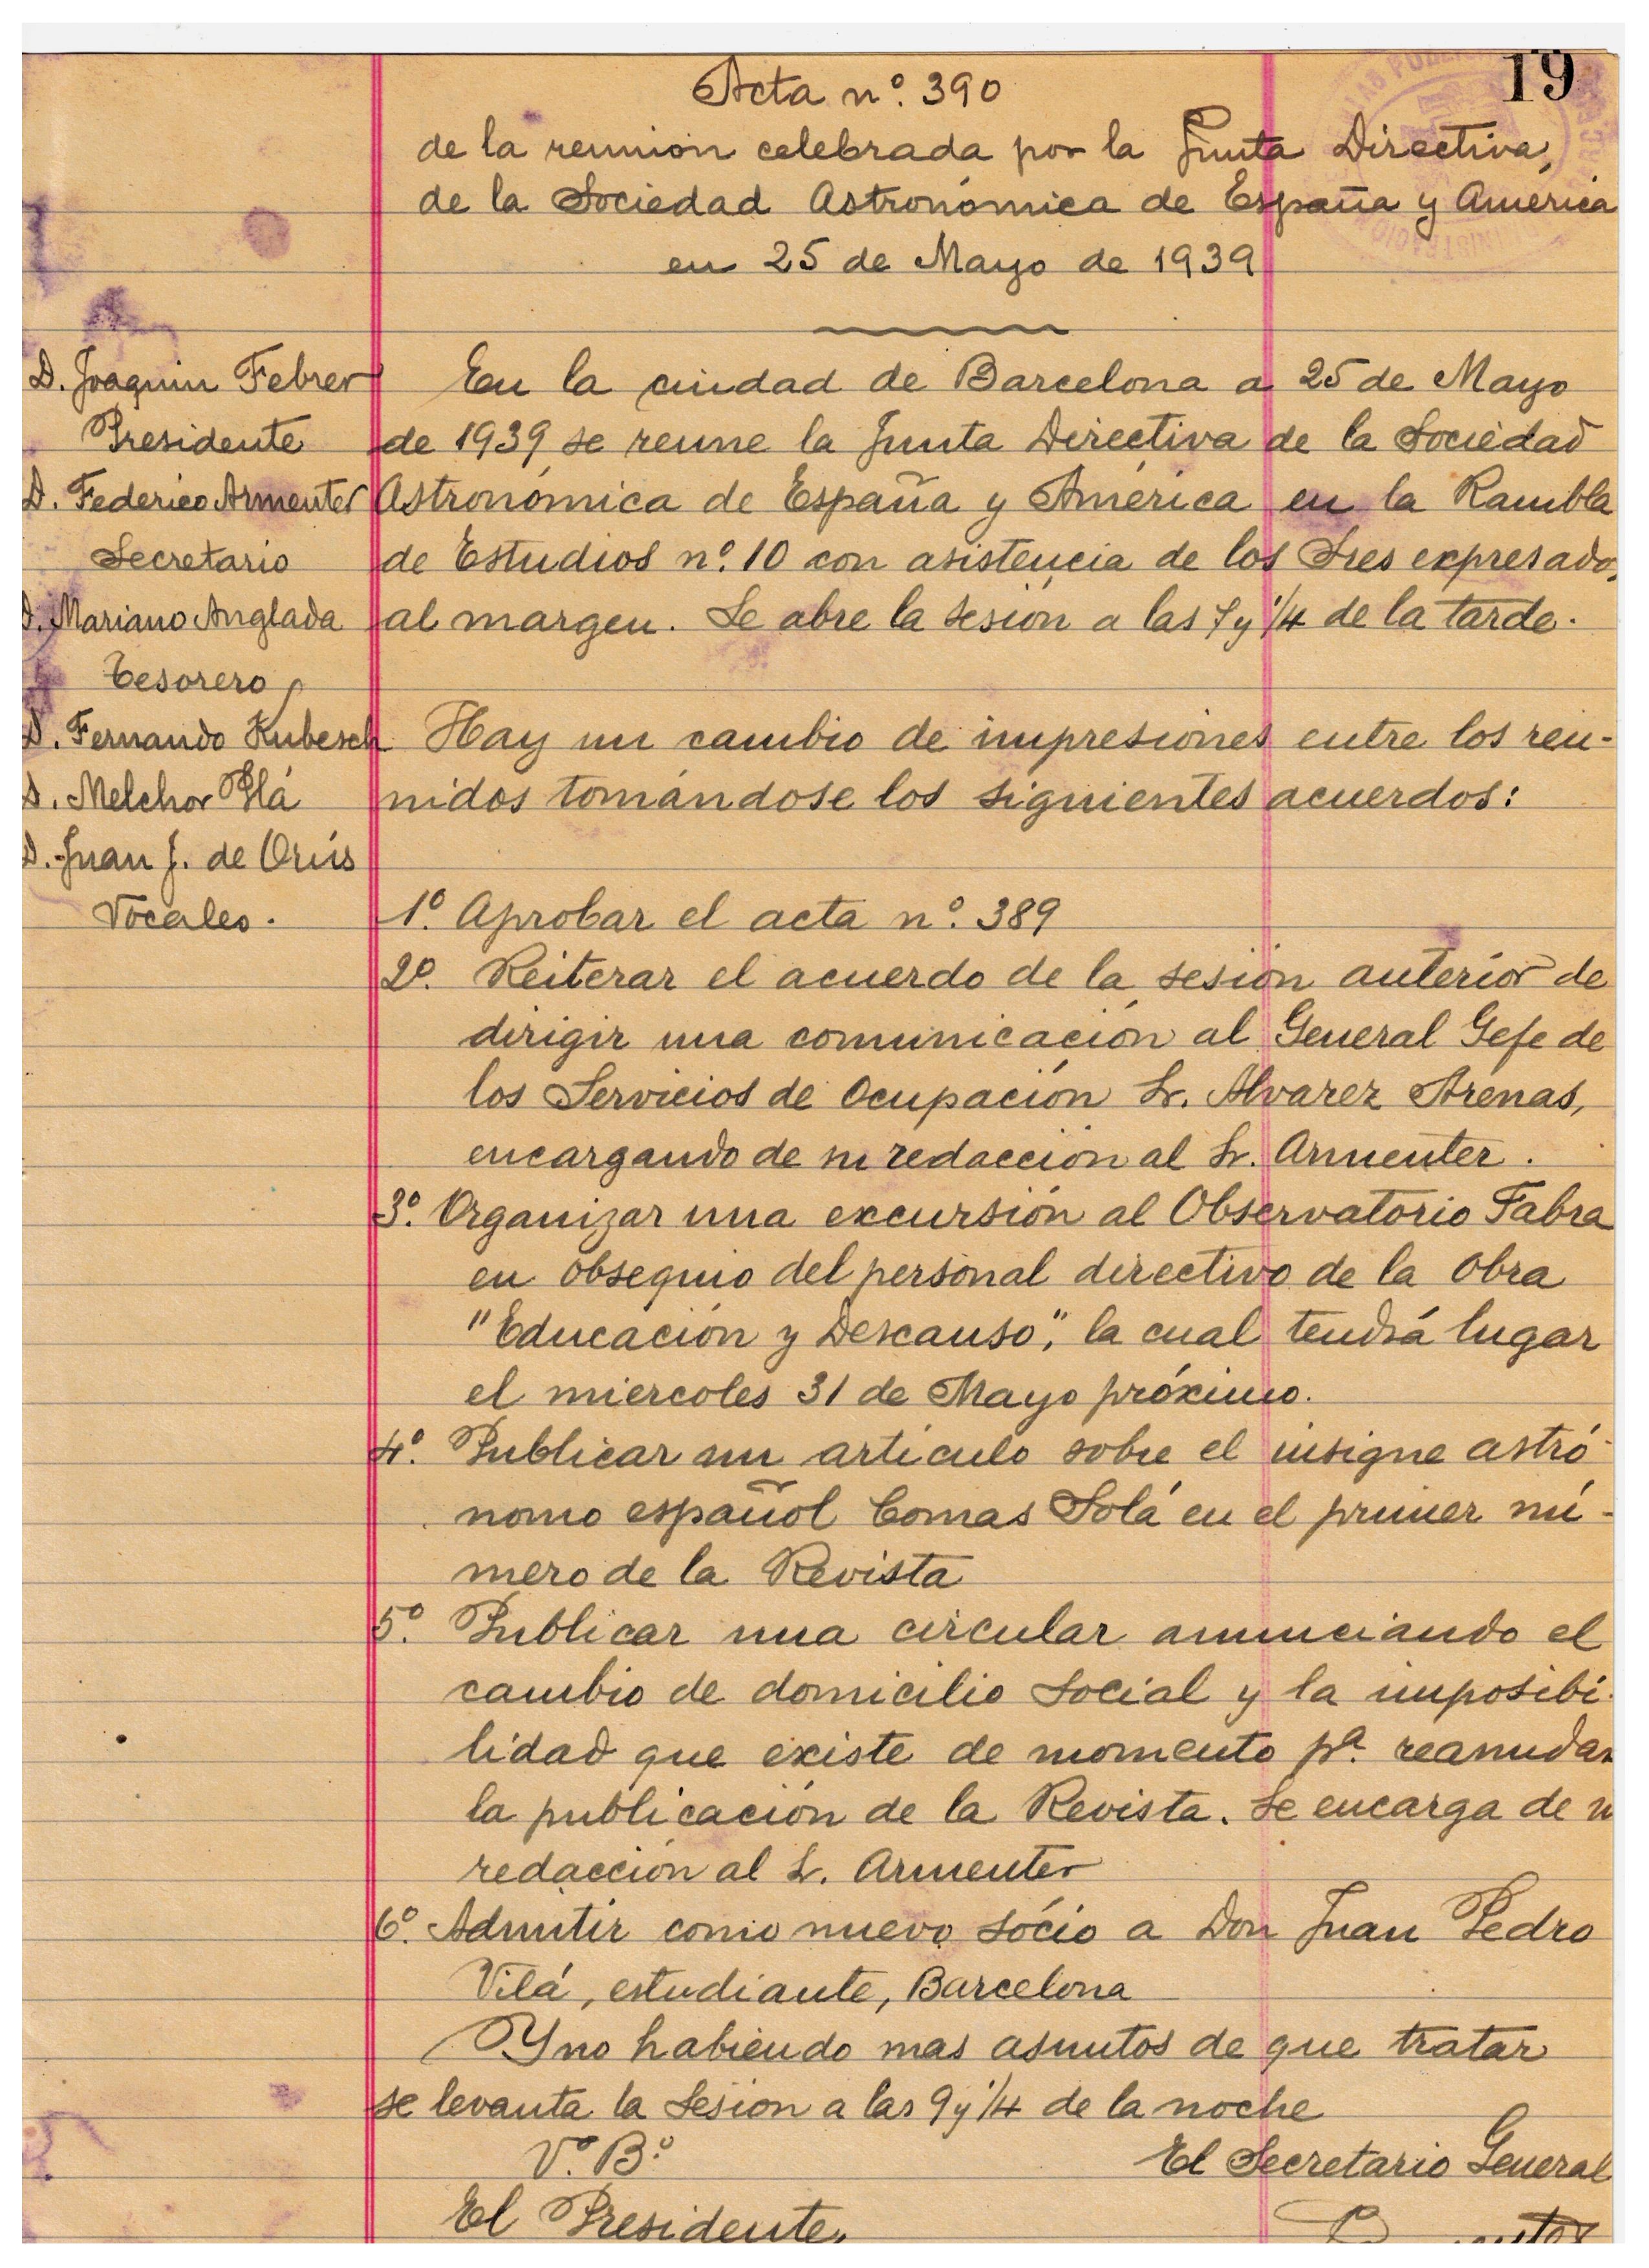 19
Acta nº. 390
de la reunión celebrada por la Junta Directiva,
de la Sociedad Astronómica de España y América
en 25 de Mayo de 1939
D. Joaquin Febrer
Presidente
D. Federico Armenter
Secretario
D. Mariano Anglada
Tesorero
D. Fernando Kubesch
D. Melchor Plá
D. Juan J. de Orús
Vocales.
En la ciudad de Barcelona a 25 de Mayo
de 1939 se reune la Junta Directiva de la Sociedad
Astronómica de España y América en la Rambla
de Estudios nº. 10 con asistencia de los Sres expresados
al margen. Se abre la sesión a las 7 y 1/4 de la tarde.
Hay un cambio de impresiones entre los reu-
nidos tomándose los siguientes acuerdos:
1º. Aprobar el acta nº. 389
2º. Reiterar el acuerdo de la sesión anterior de
dirigir una comunicación al General Gefe de
los Servicios de Ocupación Sr. Alvarez Arenas,
encargando de su redacción al Sr. Armenter.
3º. Organizar una excursión al Observatorio Fabra
en obsequio del personal directivo de la Obra
"Educación y Descanso", la cual tendrá lugar
el miercoles 31 de Mayo próximo.
4º. Publicar un artículo sobre el insigne astró-
nomo español Comas Solá en el primer nú-
mero de la Revista
5º. Publicar una circular anunciando el
cambio de domicilio social y la imposibi-
lidad que existe de momento pª. reanudar
la publicación de la Revista. Se encarga de su
redacción al Sr. Armenter
6º. Admitir como nuevo sócio a Don Juan Pedro
Vilá, estudiante, Barcelona
Y no habiendo mas asuntos de que tratar
se levanta la sesión a las 9 y 1/4 de la noche
Vº. Bº.
El Secretario General
El Presidente,